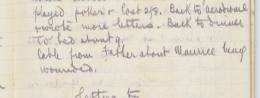 played poker & lost 2/8. Back to aerodrome
& wrote more letters. Back to dinner
To bed about 9.
Cable from Father about Maurice being
wounded.
Letters to